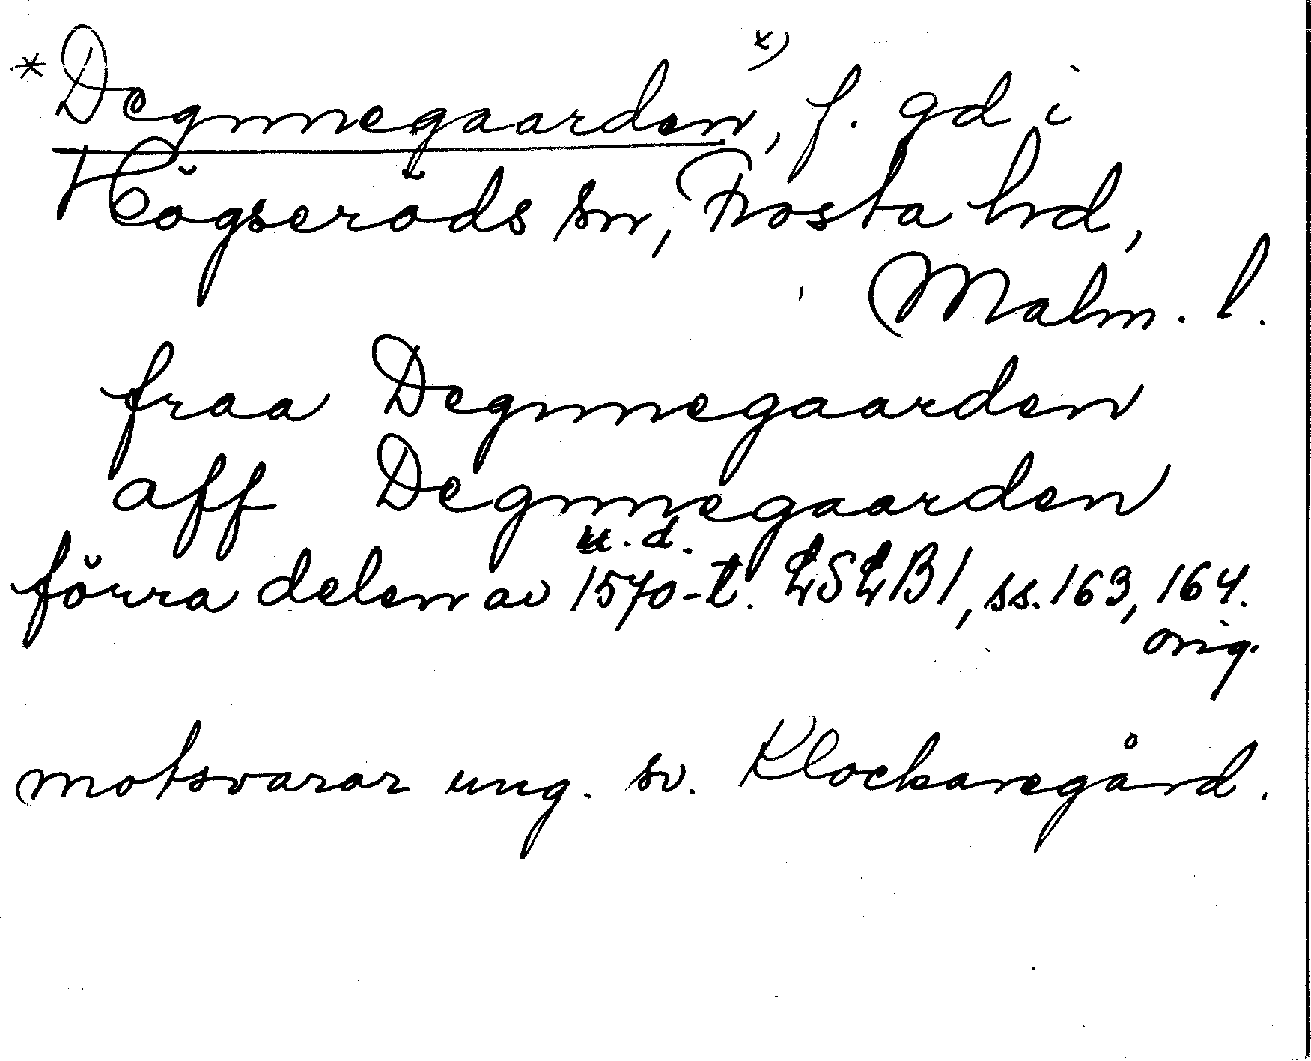 *Degnnegaarden, x) f. gd i
Högseröds sn, Frosta hd,
Malm. l.
fraa Degnnegaarden
aff Degnnegaarden
u. d.
förra delen av 1570-t. LSLB1, ss. 163, 164.
orig.
motsvarar ung. sv. Klockaregård.